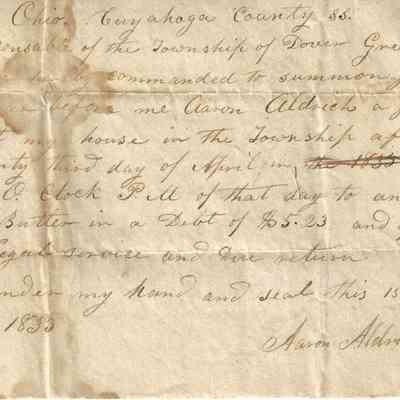 Ohio. Cuyahoga County ss.
onsable of the Township of Dover Gree
hereby commanded to summons
before me Aaron Aldrich a J
t my house in the Township af
nty third day of April in the 1833
O. Clock P. M of that day to an
Butter in a Debt of $5.23 and
Legal service and Due return
under my hand and seal this 15
1833
Aaron Aldri